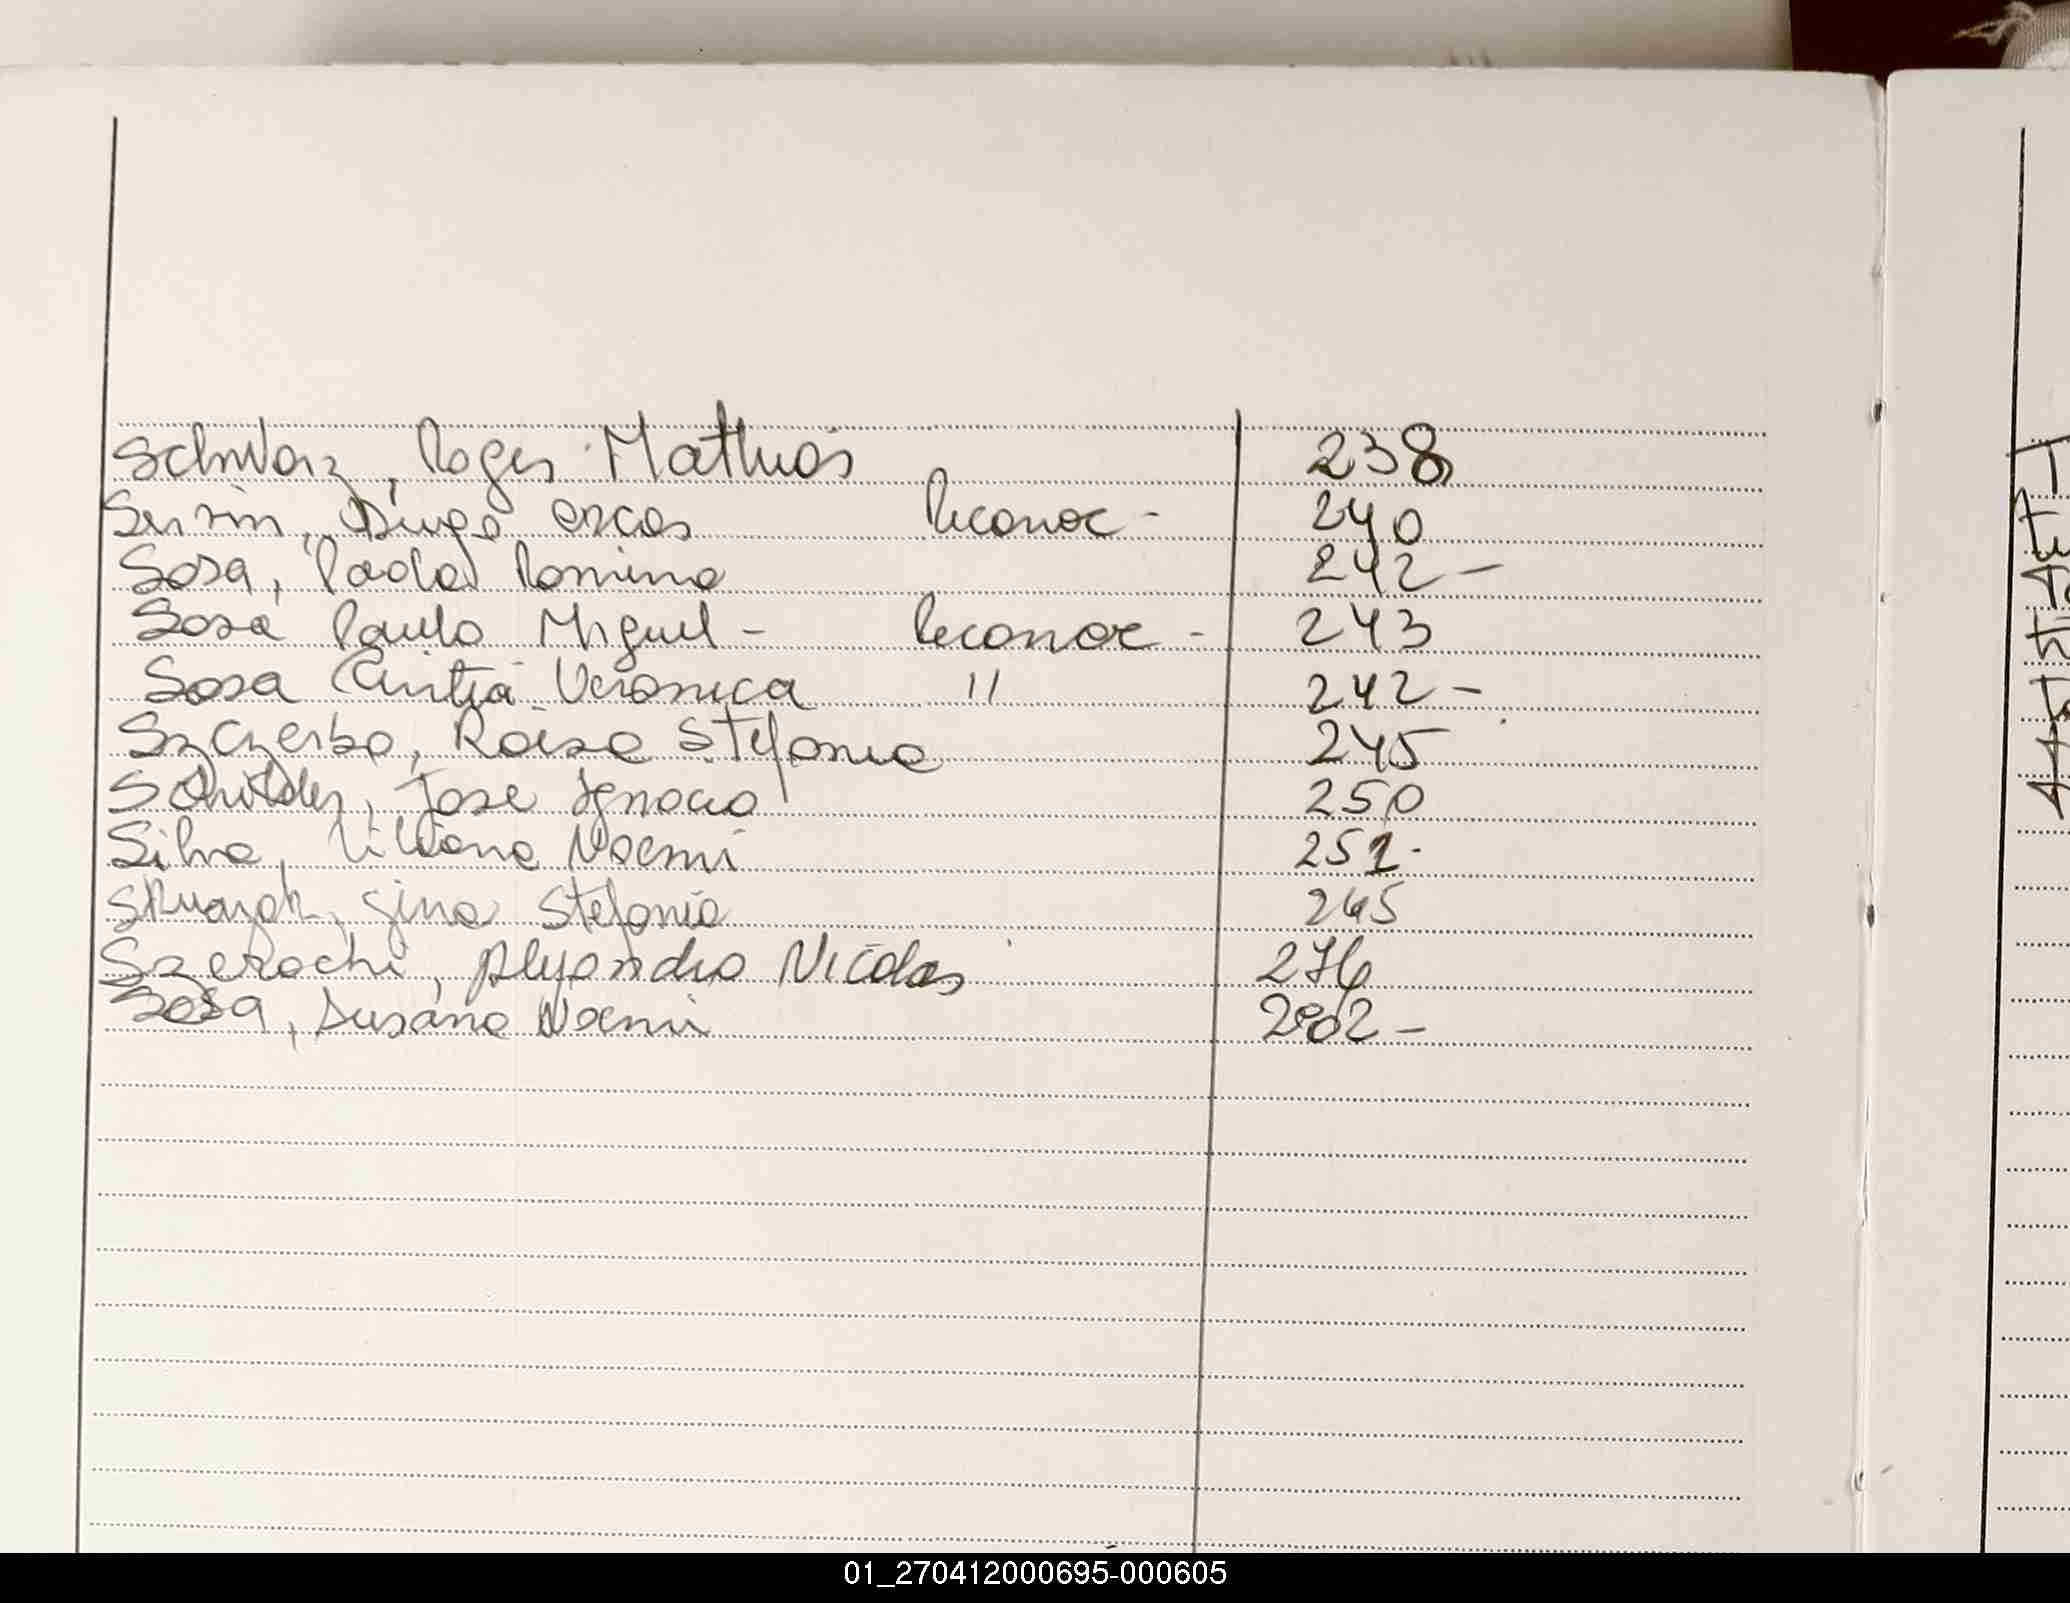 Schwarz, Roger Mathias 238
Diego Reconoc - 240
Sosa, Paola Romina 242 -
Sosa Paulo Miguel - Reconoc - 243
Sosa Cintia Veronica " 242 -
Szczerba, Raisa Stefania 245
Schilder, Jose Ignacio 250
Silva, Viviana Noemi 251.
Gina Stefania 265
Alejandro Nicolas 276
Sosa, Susana Noemi
01_270412000695-000605